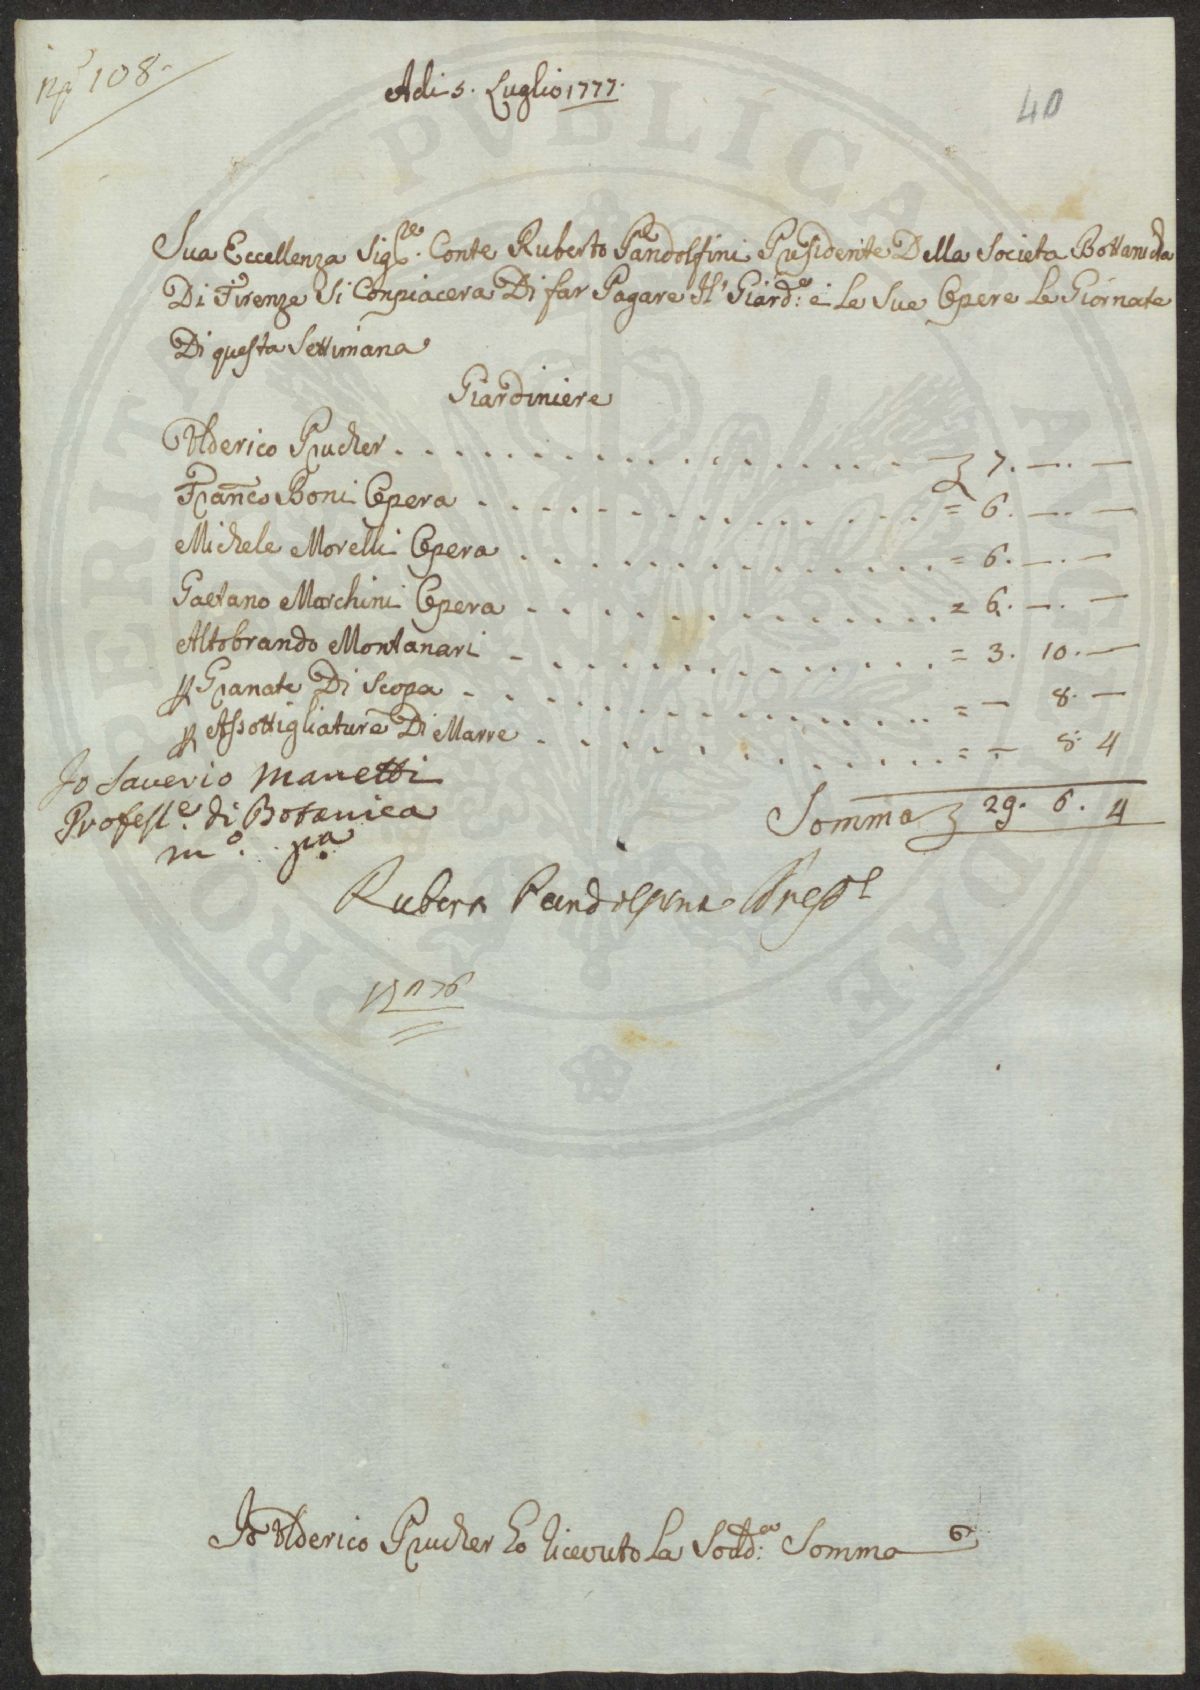 No 108.
Adi 5. Luglio 1777.
40
Sua Eccellenza Sig.re Conte Ruberto Pandolfini Presidente Della Societa Bottanicha
Di Firenze Si Conpiacera Di far Pagare Il Giard.e e Le Sue Opere Le Giornate
Di questa Settimana
Giardiniere
Ulderico Prucher . . . . 7. — . —
Franco Boni Opera . . . . = 6. — . —
Michele Morelli Opera . . . . = 6. — . —
Gaetano Marchini Opera . . . . = 6. — . —
Altobrando Montanari . . . . = 3. 10. —
p Granate Di Scopa . . . . = — 8. —
p Assottigliature Di Marre . . . . = — 8. 4
Somma 29. 6. 4
Io Saverio Manetti
Profess.e di Botanica
m.o p.a
Pandolfini Presd.e
Io Ulderico Prucher ho ricevuto La Sodd.a Somma
PERITATI PVBLICAE AVGENDAE PRO